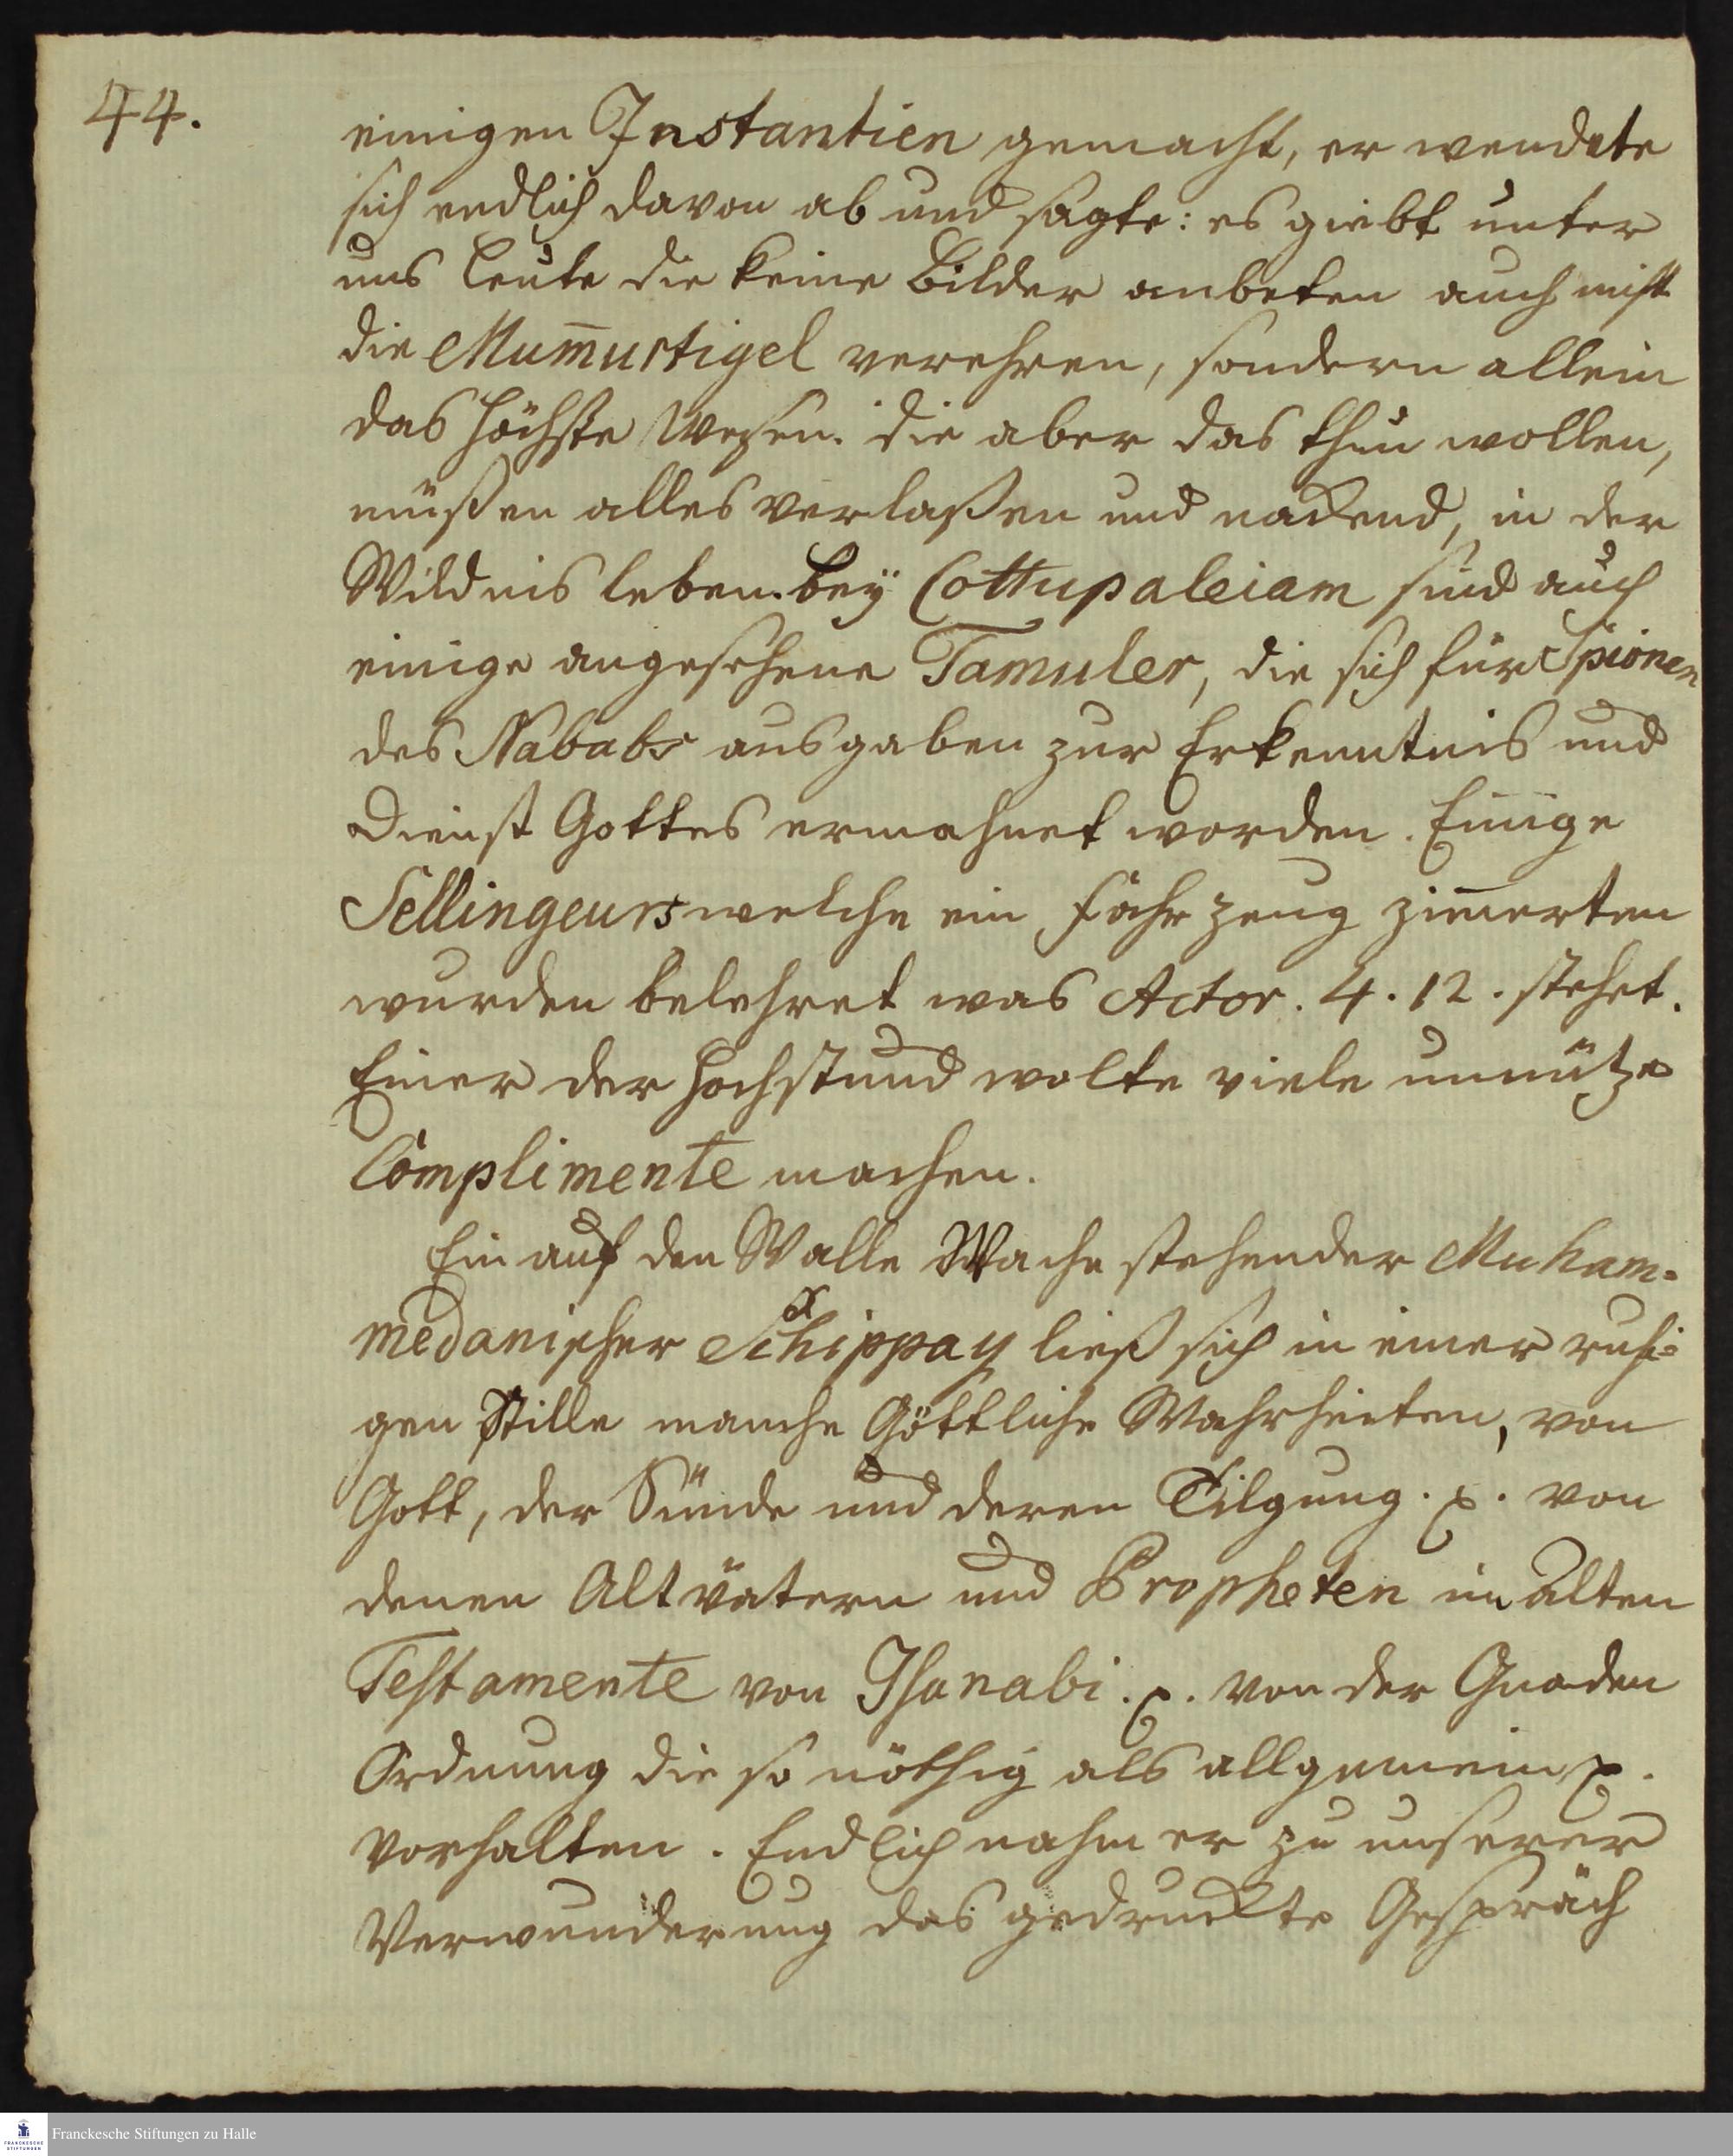 44.
einigen Instantien gemacht, er wendete
sich endlich davon ab und sagte: es giebt unter
uns Leute die keine Bilder anbeten auch nicht
die Mum̅urtigel verehren, sondern allein
das höchste Wesen. die aber das thun wollen,
müßen alles verlaßen und nackend, in der
Wildnis leben. bey Cottupaleiam sind auch
einige angesehene Tamuler, die sich für Spionen
des Nababs ausgaben zur Erkenntnis und
Dienst Gottes ermahnet worden. Einige
Sellingeurs welche ein Fahrzeug zim̅erten
wurden belehret was Actor. 4. 12. stehet.
Einer der hochstund wolte viele unnütze
Complimente machen.
Ein auf den Walle Wache stehender Muham-
medanischer Schippay ließ sich in einer ruhi-
gen Stille manche Göttliche Wahrheiten, von
Gott, der Sünde und deren Tilgung. p. von
denen Altvätern und Propheten im alten
Testamente von Isanabi. p. von der Gnaden
Ordnung die so nöthig als allgemein p.
vorhalten. Endlich nahm er zu unserer
Verwunderung das gedruckte Gespräch
Franckesche Stiftungen zu Halle